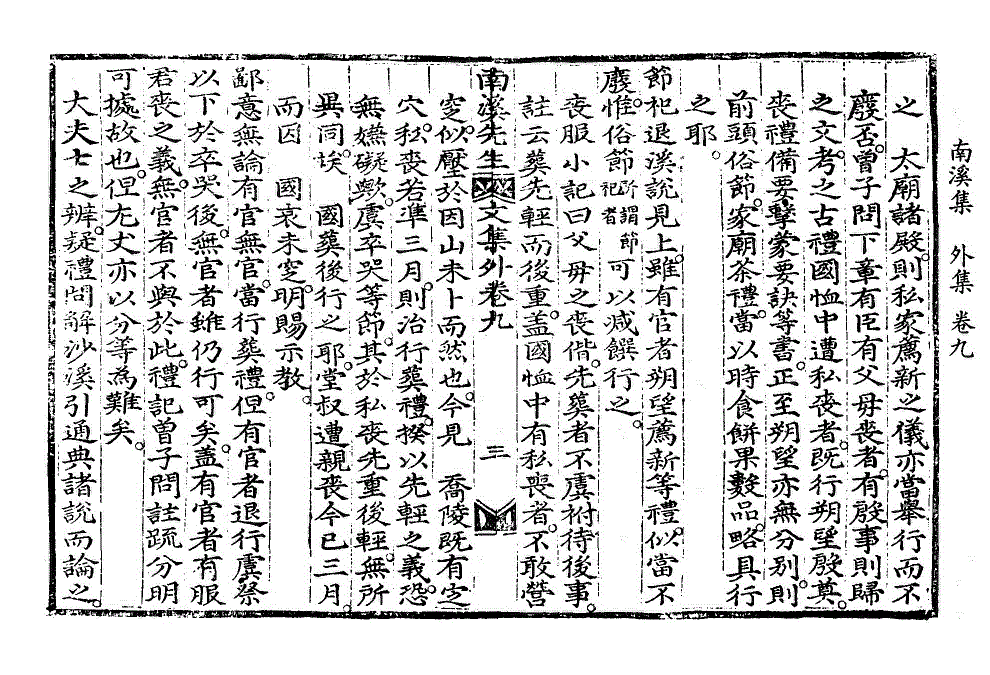 南溪集　外集　卷九
之　太廟諸殿。則私家薦新之儀亦當舉行而不
廢否。曾子問下章有臣有父母喪者。有殷事則歸
之文。考之古禮國恤中遭私喪者。旣行朔望殷奠。
喪禮備要,擊蒙要訣等書。正至朔望亦無分別。則
前頭俗節。家廟茶禮。當以時食餠果數品。略具行
之耶。
節祀退溪說見上。雖有官者朔望薦新等禮。似當不
廢。惟俗節所謂節祀者可以減饌行之。
喪服小記曰父母之喪偕。先葬者不虞祔。待後事。
註云葬先輕而後重。盖國恤中有私喪者。不敢營
南溪先生文集外卷九　三
窆。似壓於因山未卜而然也。今見　喬陵旣有定
穴。私喪若準三月。則治行葬禮。揆以先輕之義。恐
無嫌礙歟。虞卒哭等節。其於私喪先重後輕。無所
異同。俟　國葬後行之耶。堂叔遭親喪今已三月。
而因　國哀未窆。明賜示敎。
鄙意無論有官無官。當行葬禮。但有官者退行虞祭
以下於卒哭後。無官者雖仍行可矣。盖有官者有服
君喪之義。無官者不與於此。禮記曾子問註疏分明
可據故也。但尤丈亦以分等爲難矣。
大夫士之辨。疑禮問解沙溪引通典諸說而論之。